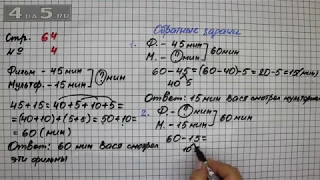 4BU5.RU
Стр. 64
№ 4
Фильм - 45 мин
Мультф. - 15 мин
? мин
45+15=40+5+10+5=
=(40+10)+(5+5)=50+10=
=60 (мин)
Ответ: 60 мин Вася смотрел
эти фильмы
Обратные задачи
1.
Ф. - 45 мин
М. - ? мин
60 мин
60-45=(60-40)-5=20-5=15 (мин)
40 5
Ответ: 15 мин Вася смотрел мультфильм
2.
Ф. - ? мин
М. - 15 мин
60 мин
60-15=
10